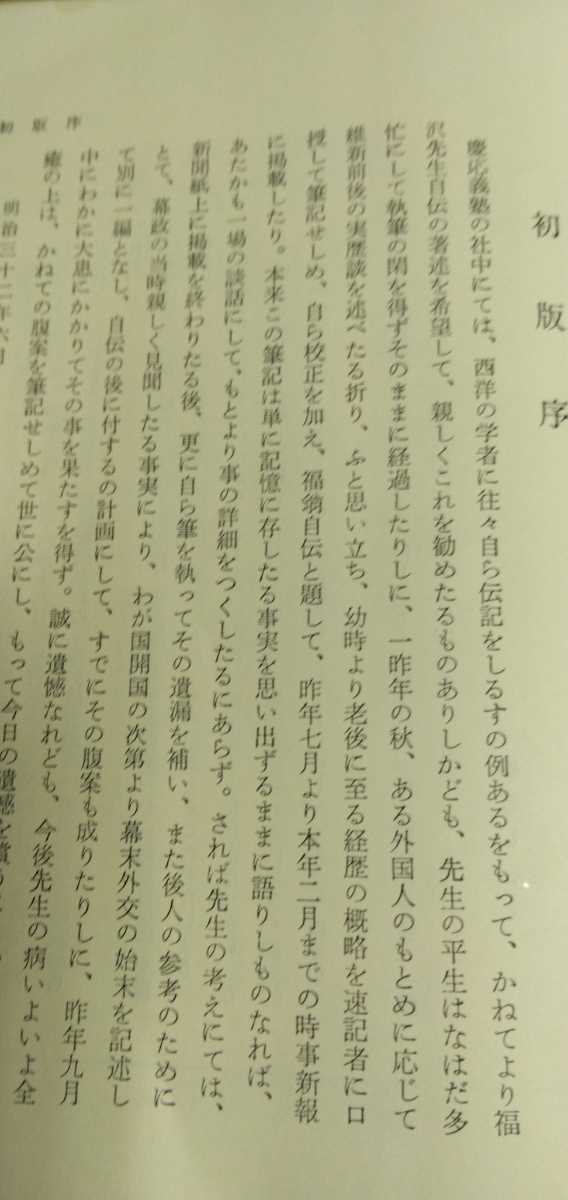 初版序
慶応義塾の社中にては、西洋の学者に往々自ら伝記をしるすの例あるをもって、かねてより福
沢先生自伝の著述を希望して、親しくこれを勧めたるものありしかども、先生の平生はなはだ多
忙にして執筆の閑を得ずそのままに経過したりしに、一昨年の秋、ある外国人のもとめに応じて
維新前後の実歴談を述べたる折り、ふと思い立ち、幼時より老後に至る経歴の概略を速記者に口
授して筆記せしめ、自ら校正を加え、福翁自伝と題して、昨年七月より本年二月までの時事新報
に掲載したり。本来この筆記は単に記憶に存したる事実を思い出ずるままに語りしものなれば、
あたかも一場の談話にして、もとより事の詳細をつくしたるにあらず。されば先生の考えにては、
新聞紙上に掲載を終わりたる後、更に自ら筆を執ってその遺漏を補い、また後人の参考のために
とて、幕政の当時親しく見聞したる事実により、わが国開国の次第より幕末外交の始末を記述し
て別に一編となし、自伝の後に付するの計画にして、すでにその腹案も成りたりしに、昨年九月
中にわかに大患にかかりてその事を果たすを得ず。誠に遺憾なれども、今後先生の病いよいよ全
癒の上は、かねての腹案を筆記せしめて世に公にし、もって今日の遺憾を償う
明治三十二年六月
初版序